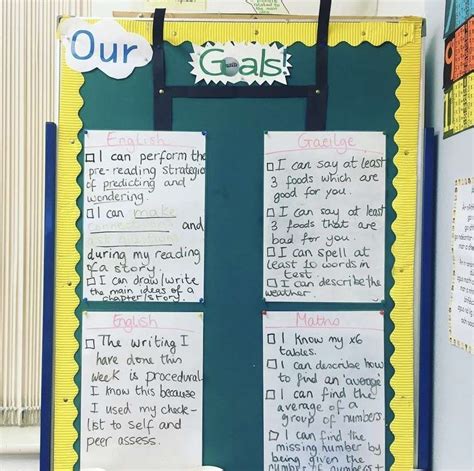 Our
Goals!
English
I can perform the
pre-reading strategies
of predicting and
wondering.
I can make
and
during my reading
of a story.
I can draw/write
the main ideas of a
chapter/story.
Gaeilge
I can say at least
3 foods which are
good for you.
I can say at least
3 foods that are
bad for you.
I can spell at
least 10 words in
test.
I can describe the
weather.
English
The writing I
have done this
week is procedural.
I know this because
I used my check-
list to self and
peer assess.
Maths
I know my x6
tables.
I can describe how
to find an 'average'
I can find the
average of a
group of numbers.
I can find the
missing number by
being given the
numbers